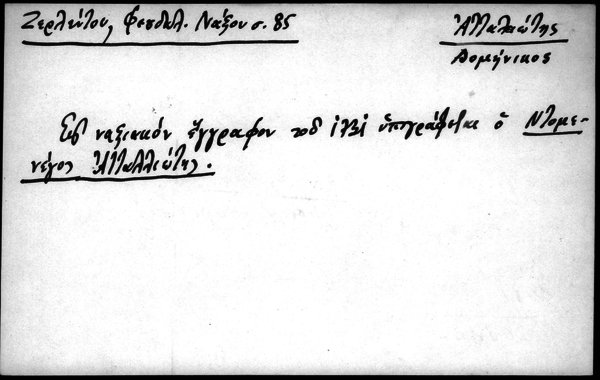 Ζερλέντου, Φεουδαλ. Νάξου σ. 85
Ἀτταλιώτης
Δομένικος
Εἰς ναξιακὸν ἔγγραφον τοῦ 1721 ὑπογράφεται ὁ Ντομε-
νέγος Ἀτταλλιώτης.